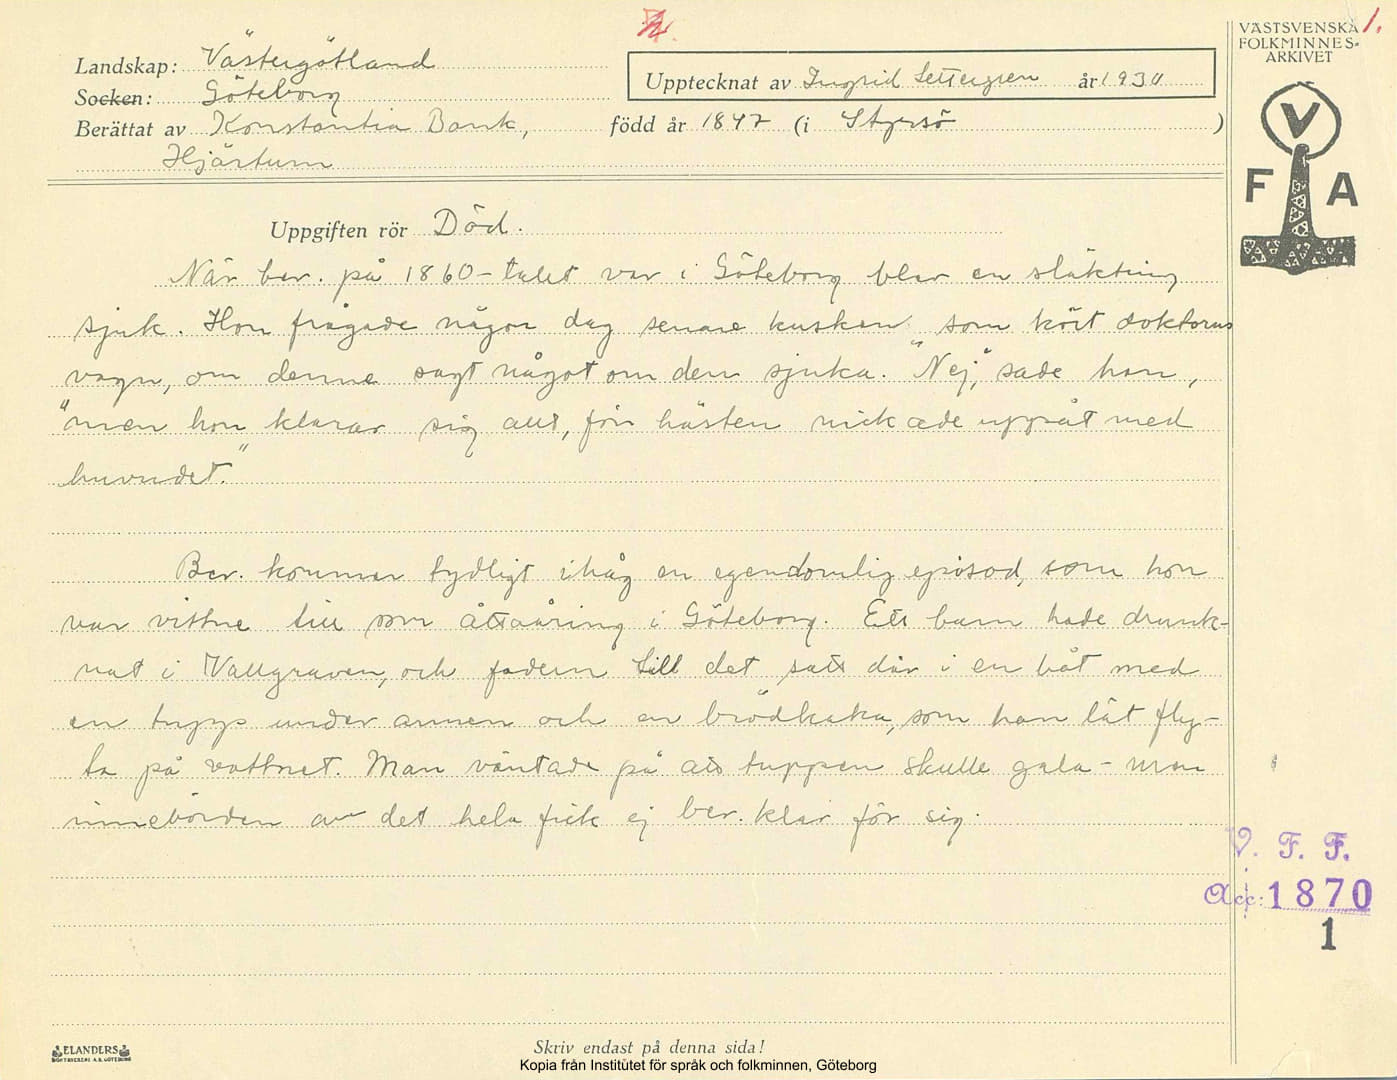 1.
VÄSTSVENSKA
FOLKMINNES-
ARKIVET
V
F A
Landskap: Västergötland
Socken: Göteborg
Upptecknat av Ingrid Settergren år 1930
Berättat av Konstantia Bank, född år 1847 (i Styrsö )
Hjärtum
Uppgiften rör Död.
När ber. på 1860-talet var i Göteborg blev en släkting
sjuk. Hon frågade någon dag senare kusken som kört doktorns
vagn, om denne sagt något om den sjuka. "Nej," sade han,
"men hon klarar sig allt, för hästen nickade uppåt med
huvudet."
Ber. kommer tydligt ihåg en egendomlig episod, som hon
var vittne till som åttaåring i Göteborg. Ett barn hade drunk-
nat i Vallgraven, och fadern till det satt där i en båt med
en tupp under armen och en brödkaka, som han lät fly-
ta på vattnet. Man väntade på att tuppen skulle gala - men
innebörden av det hela fick ej ber. klar för sig.
V. F. F.
Acc: 1870
1
ELANDERS
BOKTRYCKERI A.B. GÖTEBORG
Skriv endast på denna sida!
Kopia från Institutet för språk och folkminnen, Göteborg